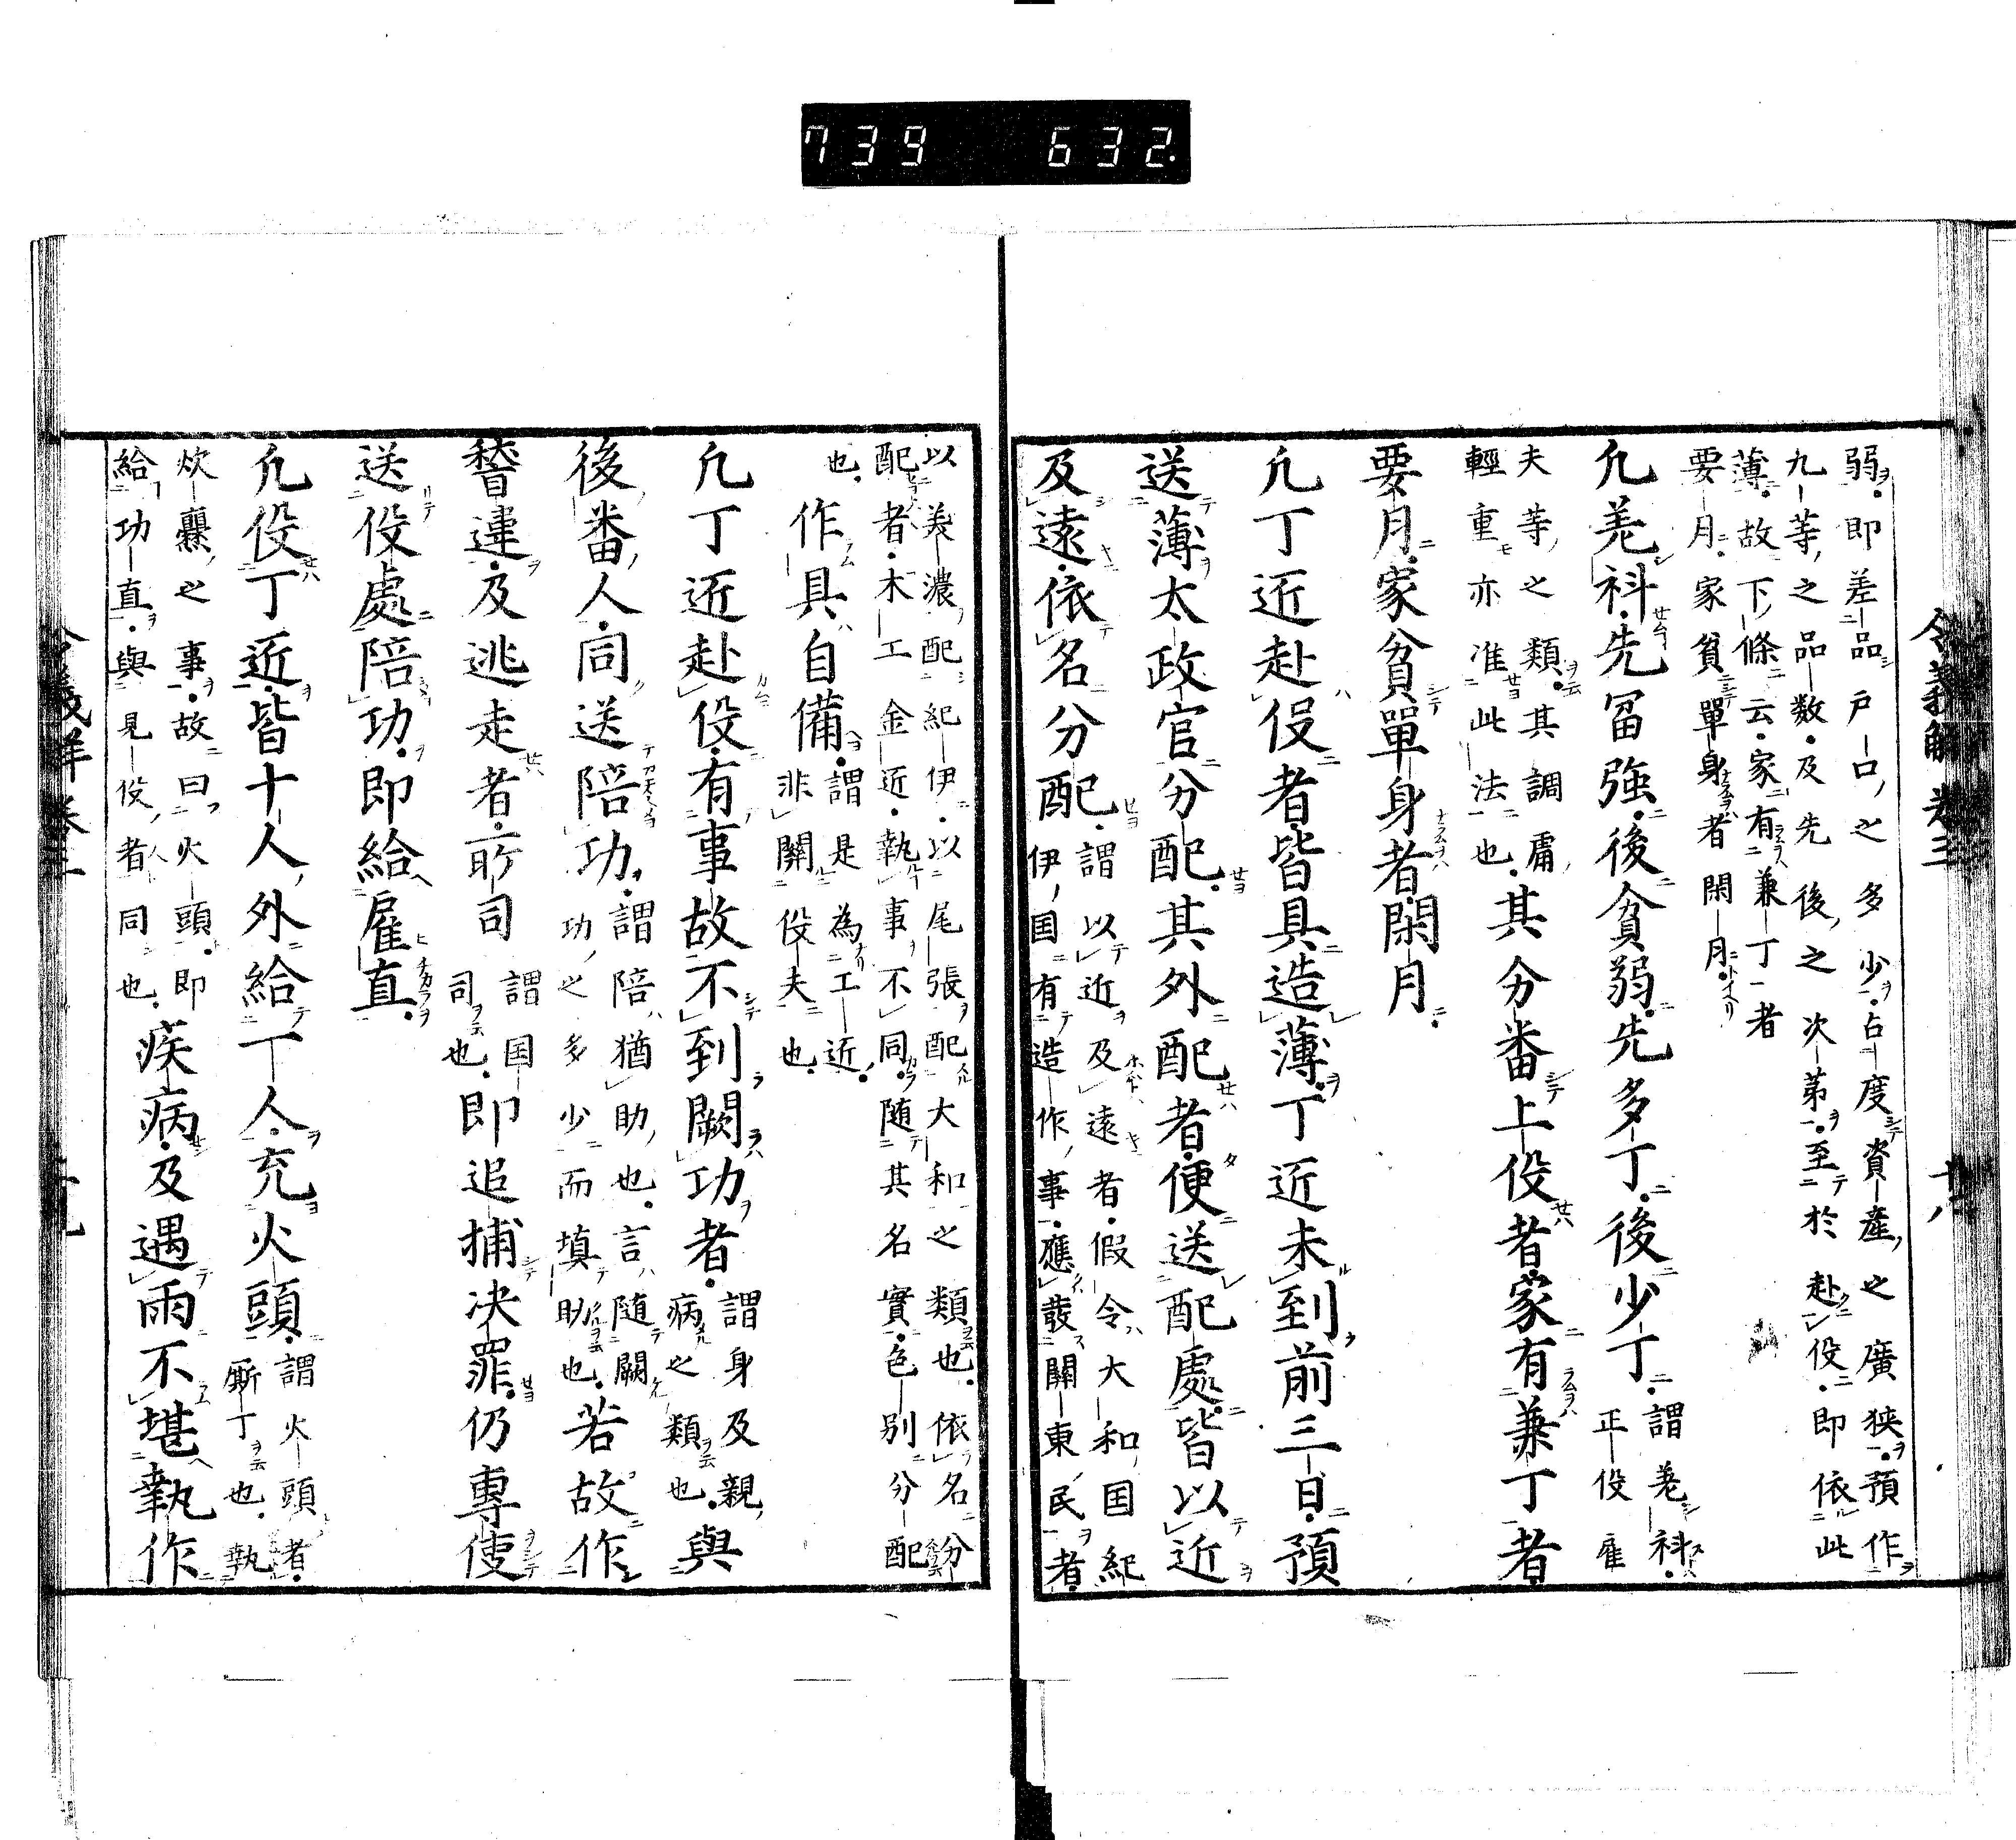 739 632
令義解 卷三 廿八
弱。即差品戶口之多少。占度資產之廣狹。預作
九等之品数。及先後之次第。至於赴役。即依此
薄。故下條云。家有兼丁者
要月。家貧單身者閑月。
凢差科。先冨強。後貧弱。先多丁。後少丁。謂差科。正役雇
夫等之類。其調庸輕重亦准此法也。其分番上役者。家有兼丁者。
要月。家貧單身者。閑月。
凢丁匠赴役者。皆具造薄。丁匠未到前三日。預
送薄太政官分配。其外配者。便送配處。皆以近
及遠。依名分配。謂以近及遠者。假令大和国紀伊国有造作事。應發關東民者。
以美濃配紀伊。以尾張配大和之類也。依名分
配者。木工金匠。執事不同。随其名實。色別分配
也。作具自備。謂是為工匠。非關役夫也。
凢丁匠赴役。有事故不到闕功者。謂身及親病之類也。與
後番人。同送陪功。謂陪猶助也。言随闕功之多少而填助也。若故作
稽違。及逃走者。所司謂国司也。即追捕决罪。仍專使
送役處陪功。即給雇直。
凢役丁匠。皆十人外給一人。充火頭。謂火頭者。厮丁也。執
炊爨之事。故曰火頭。即給功直。與見役者同也。疾病。及遇雨不堪執作
令義解 卷三